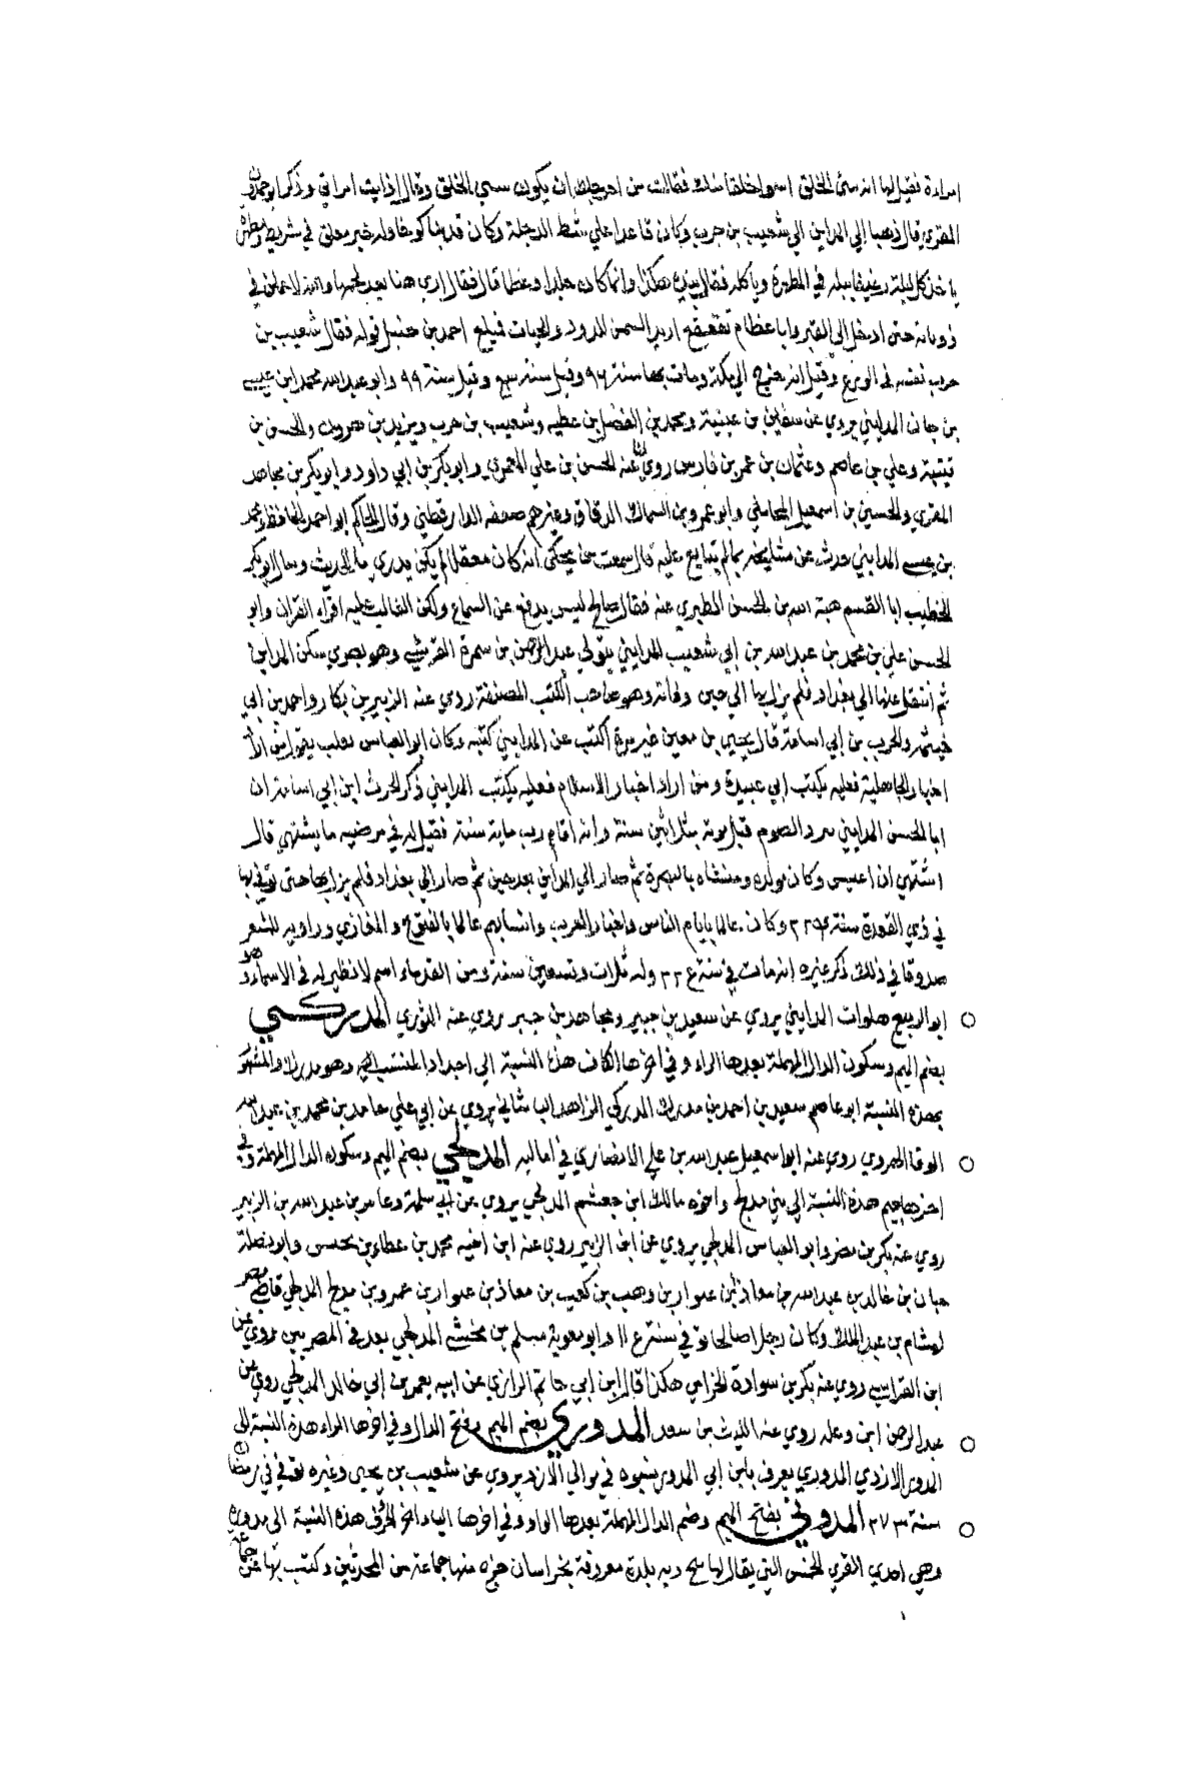 امراة فقيل لها انه سئ الخلق اسوا خلقا منك فقالت من احوجك ان يكون سيي الخلق وقال اذا انت امراتي وذكر ابو حمدون
المقري قال ذهبنا إلى المداين الي شعيب بن حرب وكان قاعدا علي شط الدجلة وكان قد بنا كوخا وله خبز معلق في شريط ومطهرة
ياخذ كل ليلة رغيفا يبله في المطهرة وياكله فقال بيده هكذا وانما كان جلدا وعظما قال فقال اري هنا بعد لحمها والله لاعملن في
ذوبانه حتى ادخل الى القبر وانا عظام تقعقع اريد السمن للدود والحيات فبلغ احمد بن حنبل قوله فقال شعيب بن
حرب نفسه في الورع وقيل انه خرج الي مكة ومات بها سنة ٩٦ وقيل سنة سبع وقيل سنة ٩٩ وابو عبد الله محمد ابن عيسى
بن حيان المدايني يروي عن سفين بن عيينة ومحمد بن الفضل بن عطيه وشعيب بن حرب ويزيد بن هرون والحسن بن
قتيبة وعلي بن عاصم وعثمان بن عمر بن فارس روي عنه الحسن بن علي المعمري وابو بكر بن ابي داود وابو بكر بن مجاهد
المقري والحسين بن اسمعيل المحاملي وابو عمرو بن السماك الدقاق وغيرهم ضعفه الدارقطني وقال الحاكم ابو احمد الحافظ محمد
بن عيسى المدايني حدث عن مشايخه بما لم يتابع عليه قال سمعت من يحكي انه كان مغفلا لم يكن يدري ما الحديث وسال ابو بكر
الخطيب ابا القسم هبة الله بن الحسن الطبري عنه فقال صالح ليس يدفع عن السماع ولكن الغالب عليه اقراء القران وابو
الحسن علي بن محمد بن عبد الله بن ابي شعيب المدايني يتولي عبد الرحمن بن سمرة القرشي وهو بصري سكن المداين
ثم انتقل عنها الي بغداد فلم يزل بها الي حين وفاته وهو صاحب الكتب المصنفة روي عنه الزبير بن بكار واحمد بن ابي
خيثمه والحرب بن ابي اسامة قال يحيي بن معين غير مرة اكتب عن المدايني كتبه وكان ابو العباس ثعلب يقول من اراد
اخبار الجاهلية فعليه بكتب ابي عبيدة ومن اراد اخبار الاسلام فعليه بكتب المدايني ذكر الحرث ابن ابي اسامة ان
ابا الحسن المدايني سرد الصوم قبل موته بثلاثين سنة وانه اقام رب ماية سنة فقيل له في مرضه ما يشتهي قال
اشتهي ان اعيش وكان مولده ومنشاه بالبصرة ثم صار الي المداين بعد حين ثم صار الي بغداد فلم يزل بها حتى توفي بها
في ذي القعدة سنة ٢٢٥ وكان عالما بايام الناس واخبار العرب وانسابهم عالما بالفتوح والمغازي ورواية للشعر
صدوقا في ذلك ذكر غيره انه مات في سنة ٢٢٤ وله ثلاث وتسعين سنة ومن القدماء اسم لا نظير له في الاسماء وهو
ابو الربيع صلوات المدايني يروي عن سعيد بن جبير ومجاهد بن جبر يروي عنه الثوري المدركي
بضم الميم وسكون الدال المهملة بعدها الراء وفي اخرها الكاف هذه النسبة الي اجداد المنتسب اليه وهو مدرك والمشهور
بهذه النسبة ابو عاصم سعيد بن احمد بن مدرك المدركي الزاهد الباشاني يروي عن ابي علي حامد بن محمد بن عبد الله
الرفا الهروي روي عنه ابو اسمعيل عبد الله بن علي الانصاري في اماليه المدلجي بضم الميم وسكون الدال المهملة وفي
اخرها جيم هذه النسبة الي بني مدلج واخوه مالك ابن جعشم المدلجي يروي عن ابي سلمة وعامر بن عبد الله بن الزبير
روي عنه بكر بن مضر وابو العباس المدلجي يروي عن ابن الزبير روي عنه ابن اخيه محمد بن عطاء بن يحنس وابو نضلة
حبان بن خالد بن عبد الله بن معاذ بن عتوار بن وهب بن كعب بن معاذ بن عتوار بن عمرو بن مدلج المدلجي قاضي مصر
لهشام بن عبد الملك وكان رجلا صالحا توفي سنة ١١٤ وابو معوية مسلم بن مخشي المدلجي يعد في المصريين يروي عن
ابن الفراسي روي عنه بكر بن سوادة الحزامي هكذا قال ابن ابي حاتم الرازي عن ابيه يعمر بن ابي خالد المدلجي روي عن
عبد الرحمن ابن وعله روي عنه الليث بن سعد المدوري بضم الميم وفتح الدال وفي اخرها الراء هذه النسبة الى
المدور الازدي المدوري يعرف بابن ابي المدور ينسبوه في موالي الازد يروي عن شعيب بن يحيى وغيره توفي في رمضان
سنة ٢٧٣ المدوني بفتح الميم وضم الدال المهملة بعدها الواو وفي اخرها الياء اخر الحروف هذه النسبة الى مدوه
وهي احدي القري الخمس التي يقال لها بنج ديه بلدة معروفة بخراسان خرج منها جماعة من المحدثين وكتب بها عن جماعة